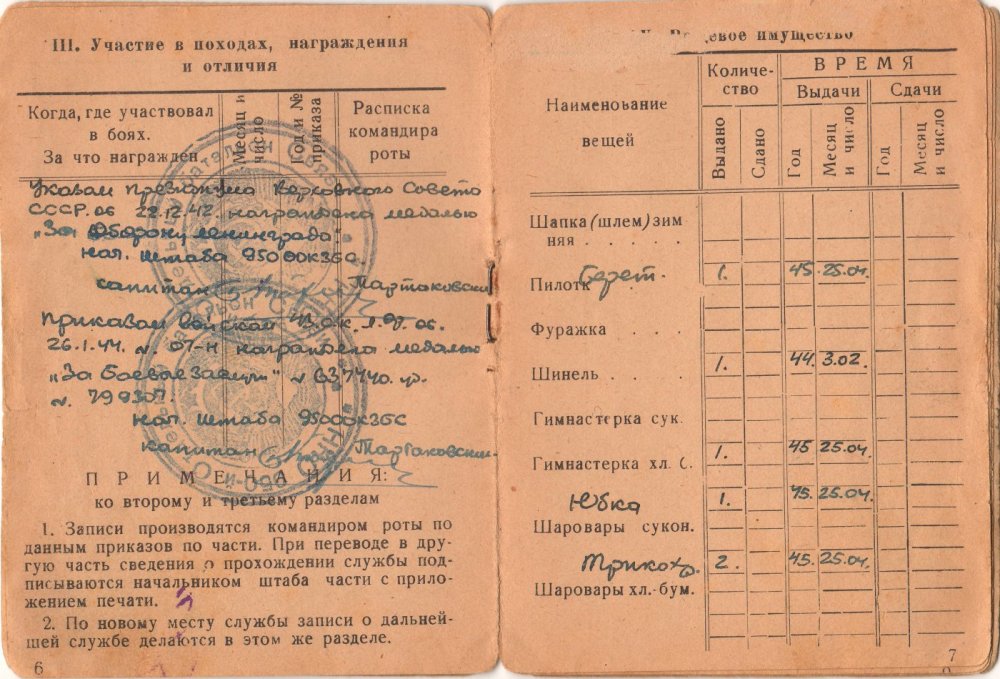 III. Участие в походах, награждения
и отличия
Когда, где участвовал
в боях.
За что награжден
Месяц и
число
Год и №
приказа
Расписка
командира
роты
Указом Президиума Верховного Совета
СССР. об 22.12.42. награждена медалью
„За Оборону Ленинграда"
нач. штаба 950
капитан Тартаковский
Приказом войскам
26.1.44. № 07-н награждена медалью
„За боевые заслуги" № 637440. уд.
№. 799307.
нач. штаба 950
капитан Тартаковский
ПРИМЕЧАНИЯ:
ко второму и третьему разделам
1. Записи производятся командиром роты по
данным приказов по части. При переводе в дру-
гую часть сведения о прохождении службы под-
писываются начальником штаба части с прило-
жением печати.
2. По новому месту службы записи о дальней-
шей службе делаются в этом же разделе.
6
имущество
Наименование
вещей
Количе-
ство
ВРЕМЯ
Выдачи
Сдачи
Выдано
Сдано
Год
Месяц
и число
Год
Месяц
и число
Шапка (шлем) зим
няя . . . . .
Пилотк Берет. 1. 45. 25.04.
Фуражка . . .
Шинель . . . . 1. 44. 3.02.
Гимнастерка сук.
Гимнастерка хл. б. 1. 45 25.04.
Юбка 1. 45. 25.04.
Шаровары сукон.
Трикот. 2. 45. 25.04.
Шаровары хл.-бум.
7